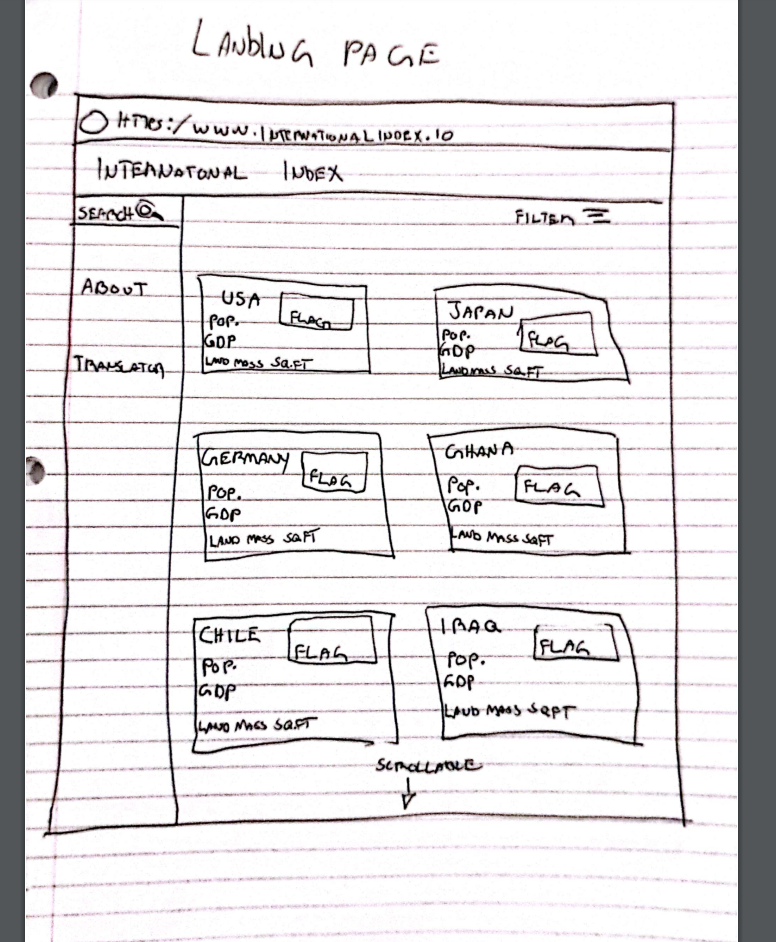 LANDING PAGE
HTTPS:/WWW.INTERNATIONALINDEX.IO
INTERNATONAL INDEX
SEARCH
FILTER
ABOUT
TRANSLATOR
USA
FLAG
POP.
GDP
LAND MASS SQ.FT
JAPAN
FLAG
POP.
GDP
LANDMASS SQ.FT
GERMANY
FLAG
POP.
GDP
LAND MASS SQFT
GHANA
FLAG
POP.
GDP
LAND MASS SQFT
CHILE
FLAG
POP.
GDP
LAND MASS SQ.FT
IRAQ
FLAG
POP.
GDP
LAND MASS SQFT
SCROLLABLE